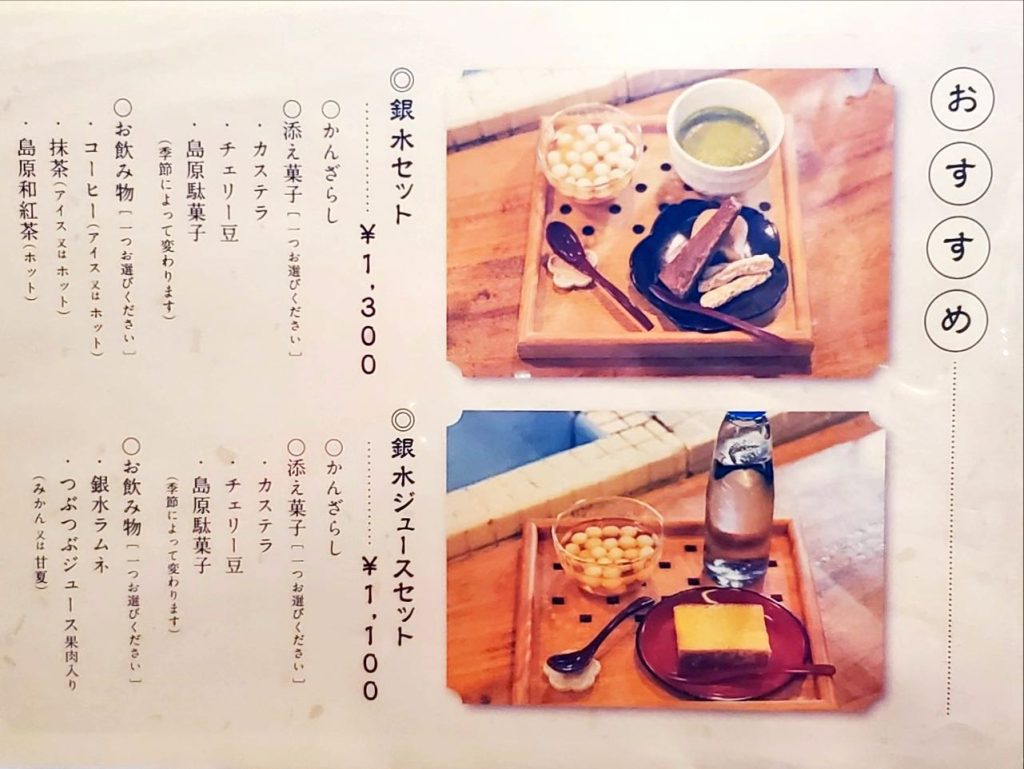 おすすめ
◎銀水セット
¥1,300
○かんざらし
○添え菓子[一つお選びください]
・カステラ
・チェリー豆
・島原駄菓子
(季節によって変わります)
○お飲み物[一つお選びください]
・コーヒー(アイス又はホット)
・抹茶(アイス又はホット)
・島原和紅茶(ホット)
◎銀水ジュースセット
¥1,100
○かんざらし
○添え菓子[一つお選びください]
・カステラ
・チェリー豆
・島原駄菓子
(季節によって変わります)
○お飲み物[一つお選びください]
・銀水ラムネ
・つぶつぶジュース果肉入り
(みかん又は甘夏)